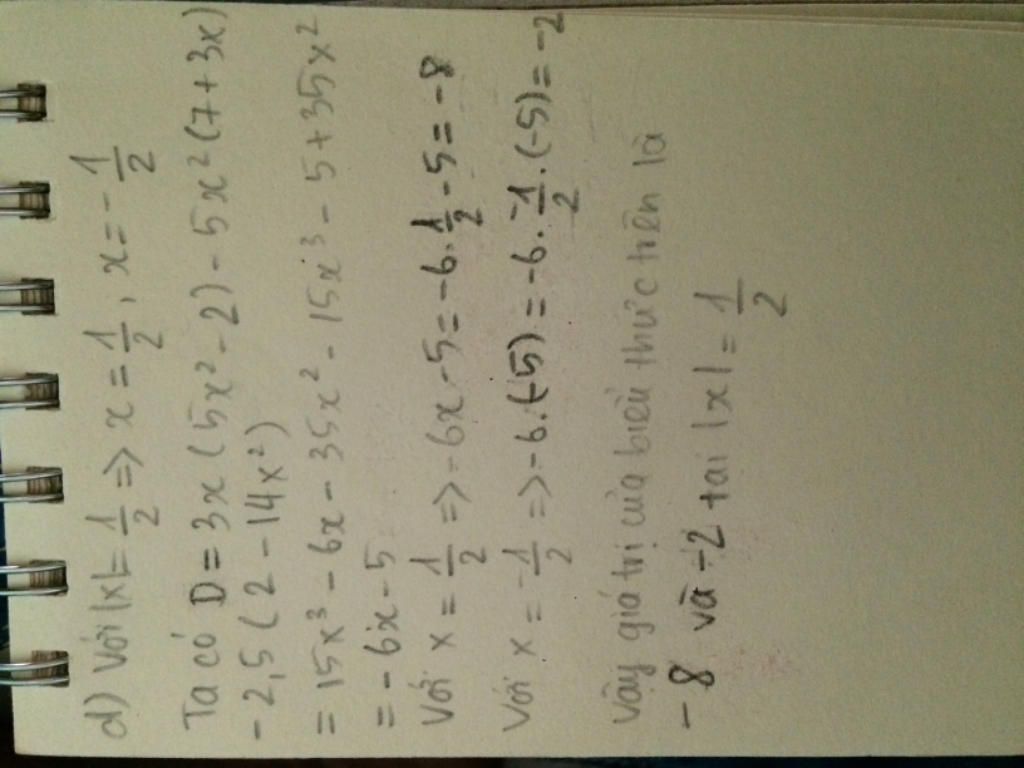 d) Với |x| = 1/2 => x = 1/2, x = -1/2
Ta có D = 3x (5x² - 2) - 5x² (7 + 3x)
- 2,5 (2 - 14x²)
= 15x³ - 6x - 35x² - 15x³ - 5 + 35x²
= - 6x - 5
Với x = 1/2 => -6x - 5 = -6 . 1/2 - 5 = -8
Với x = -1/2 => -6.(-5) = -6 . -1/2 . (-5) = -2
Vậy giá trị của biểu thức trên là
-8 và -2 tại |x| = 1/2